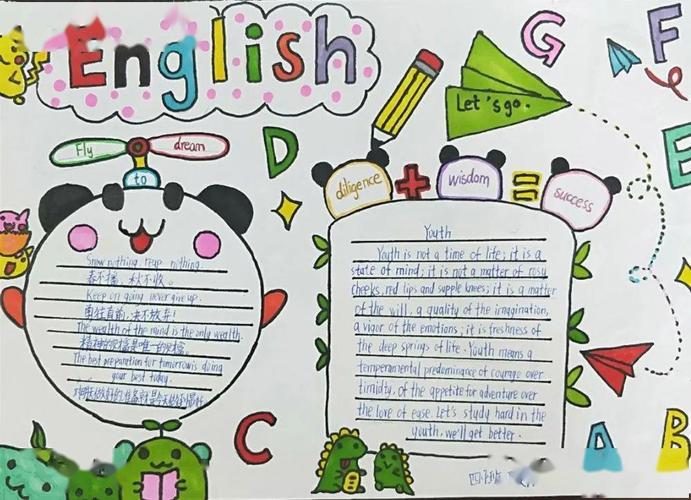 English
G
F
Let's go.
Fly
to
dream
D
E
diligence
wisdom
success
Snow nothing, reap nothing.
春不播，秋不收。
Keep on going never give up.
勇往直前，决不放弃！
The wealth of the mind is the only wealth.
精神的财富是唯一的财富。
The best preparation for tomorrow is doing
your best today.
Youth
Youth is not a time of life; it is a
state of mind; it is not a matter of rosy
cheeks, red lips and supple knees; it is a matter
of the will, a quality of the imagination,
a vigor of the emotions; it is freshness of
the deep springs of life. Youth means a
temperamental predominance of courage over
timidty, of the appetite for adventure over
the love of ease. Let's study hard in the
youth, we'll get better.
C
A
B